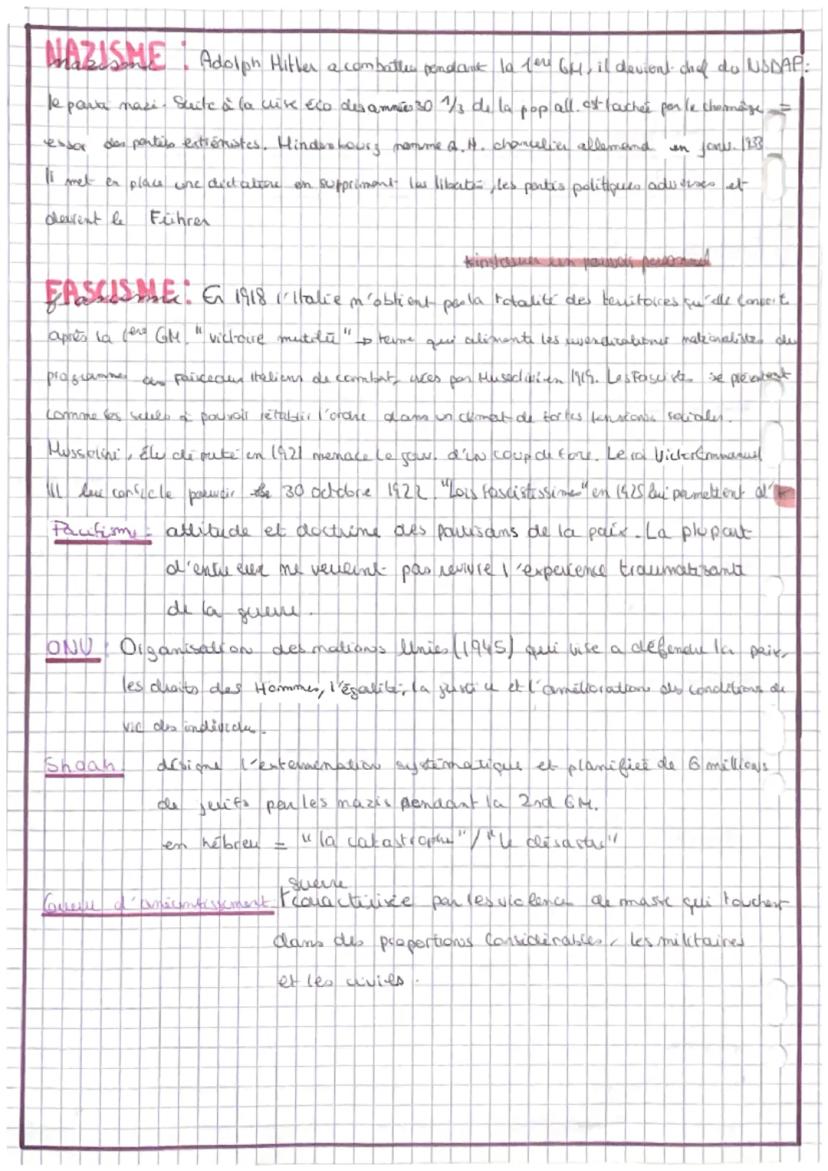 NAZISME : Adolph Hitler a combattu pendant la 1ère GM, il devient chef du NSDAP :
le parti nazi. Suite à la crise éco des années 30 1/3 de la pop all. est touchée par le chômage =
essor des partis extrémistes. Hindenbourg nomme A. H. chancelier allemand en janv. 1933
Il met en place une dictature en supprimant les libertés, les partis politiques adverses et
devient le Führer
s'instaurer un pouvoir personnel
FASCISME : En 1918 l'Italie n'obtient pas la totalité des territoires qu'elle convoit
après la 1ère GM. "victoire mutilée" → terme qui alimente les revendications nationalistes du
programme des faisceaux italiens de combat, créés par Mussolini en 1919. Les Fascistes se présentent
comme les seuls à pouvoir rétablir l'ordre dans un climat de fortes tensions sociales.
Mussolini, élu député en 1921 menace le gouv. d'un coup de force. Le roi Victor Emmanuel
III lui confie le pouvoir le 30 octobre 1922. "Lois fascistissime" en 1925 lui permettent d'
Pacifisme : attitude et doctrine des partisans de la paix. La plupart
d'entre eux ne veulent pas revivre l'expérience traumatisante
de la guerre.
ONU : Organisation des nations Unies (1945) qui vise a défendre la paix,
les droits des Hommes, l'égalité, la justice et l'amélioration des conditions de
vie des individu.
Shoah désigne l'extermination systématique et planifiée de 6 millions
de juifs par les nazis pendant la 2nd GM.
en hébreu = "la catastrophe" / "le désastre"
guerre
Guerre d'anéantissement caractérisée par les violence de masse qui touchent
dans des proportions considérables, les militaires
et les civils.